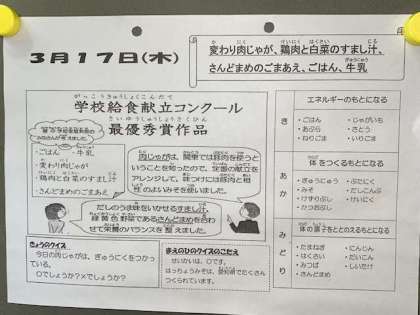 3月17日(木)
変わり肉じゃが、鶏肉と白菜のすまし汁、
さんどまめのごまあえ、ごはん、牛乳
学校給食献立コンクール
最優秀賞作品
・ごはん ・牛乳
・変わり肉じゃが
・鶏肉と白菜のすまし汁
・さんどまめのごまあえ
肉じゃがは、関東では豚肉を使うと
いうことを知ったので、定番の献立を
アレンジして、味つけには豚肉と相
性のよいみそを使いました。
だしのうま味をいかせるすまし汁、
緑黄色野菜であるさんどまめを合わ
せて栄養のバランスを整えました。
きょうのクイズ
今日の肉じゃがは、ぎゅうにくをつかっている。
○でしょうか?×でしょうか?
まえのひのクイズのこたえ
せいかいは、○です。
はっちょうみそは、愛知県でたくさん
つくられています。
き
エネルギーのもとになる
・ごはん ・じゃがいも
・あぶら ・さとう
・ねりごま ・いりごま
あか
体をつくるもとになる
・ぎゅうにゅう ・ぶたにく
・みそ ・だしこんぶ
・けずりぶし ・けいにく
・かつおぶし
みどり
体の調子をととのえるもとになる
・たまねぎ ・にんじん
・はくさい ・だいこん
・みつば ・しいたけ
・さんどまめ